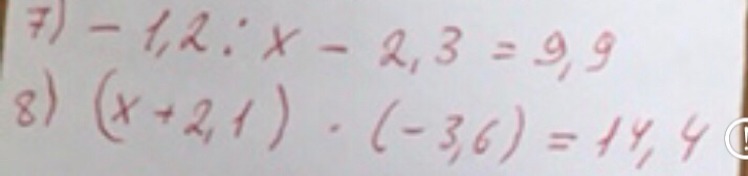 7) - 1,2 : x - 2,3 = 9,9
8) (x + 2,1) · (-3,6) = 14,4